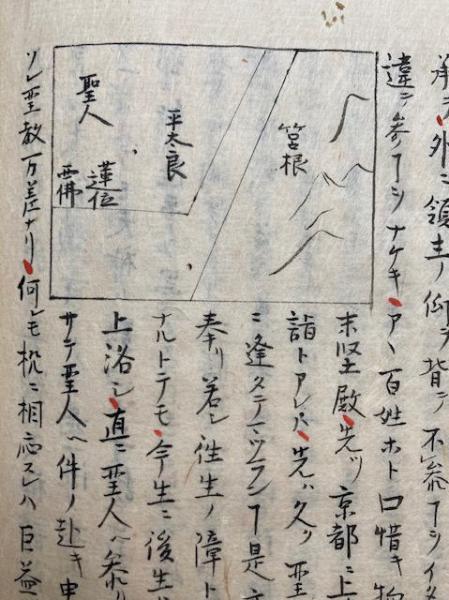 承ラ外ニ領主ノ仰ヲ背テ不参テシイタ
違テ参テシナケキアヽ百姓ホト口惜キ物
箱根
平太良
聖人
蓮位
西佛
末堅殿先ツ京都ニ上
詣トアレバ先ハ久ク聖
ニ逢タテマツラン丁是
奉リ若シ往生ノ障ト
ナルトテモ今生ニ後生
上洛シ直ニ聖人ヘ参リ
サテ聖人ヘ件ノ赴キ申
ソレ聖教万差ナリ何レモ机ニ相応スレハ巨益